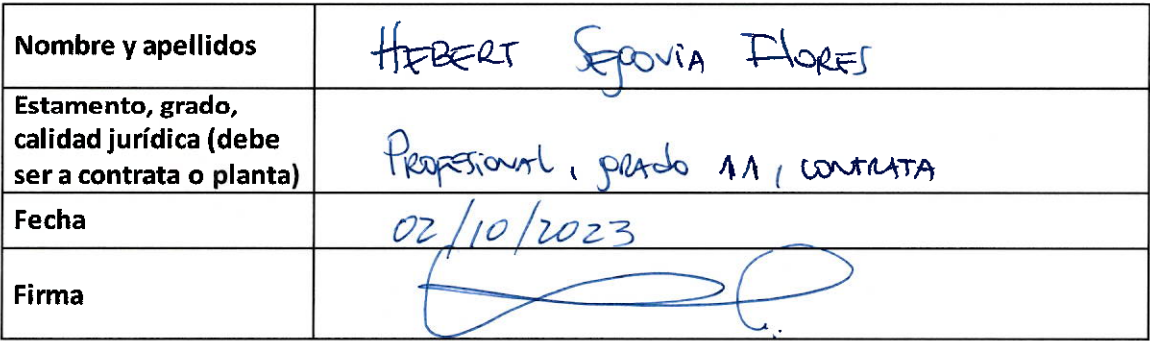 Nombre y apellidos HEBERT SEGOVIA FLORES
Estamento, grado,
calidad jurídica (debe
ser a contrata o planta) PROFESIONAL, GRADO 11, CONTRATA
Fecha 02/10/2023
Firma